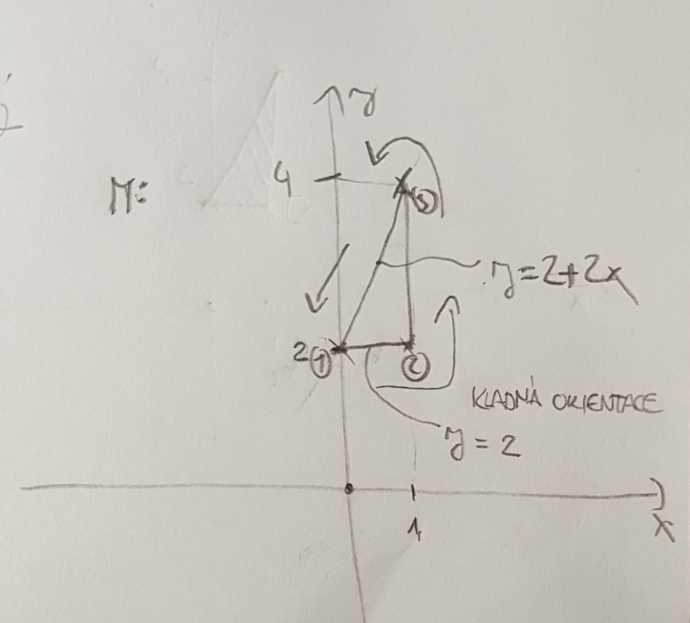 y
4
M:
3
y=2+2x
2 1
2
KLADNÁ ORIENTACE
y = 2
1
x